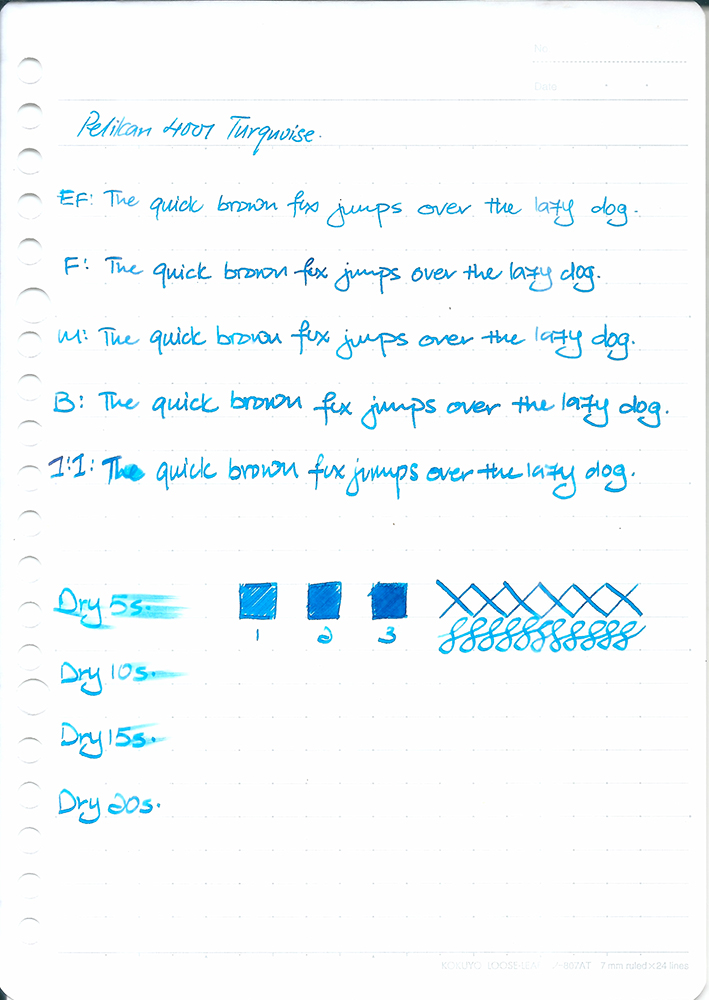 No.
Date
Pelikan 4001 Turquoise.
EF: The quick brown fox jumps over the lazy dog.
F: The quick brown fox jumps over the lazy dog.
M: The quick brown fox jumps over the lazy dog.
B: The quick brown fox jumps over the lazy dog.
1:1: The quick brown fox jumps over the lazy dog.
Dry 5s.
1 2 3
Dry 10s.
Dry 15s.
Dry 20s.
KOKUYO LOOSE-LEAF 807AT 7 mm ruled × 24 lines